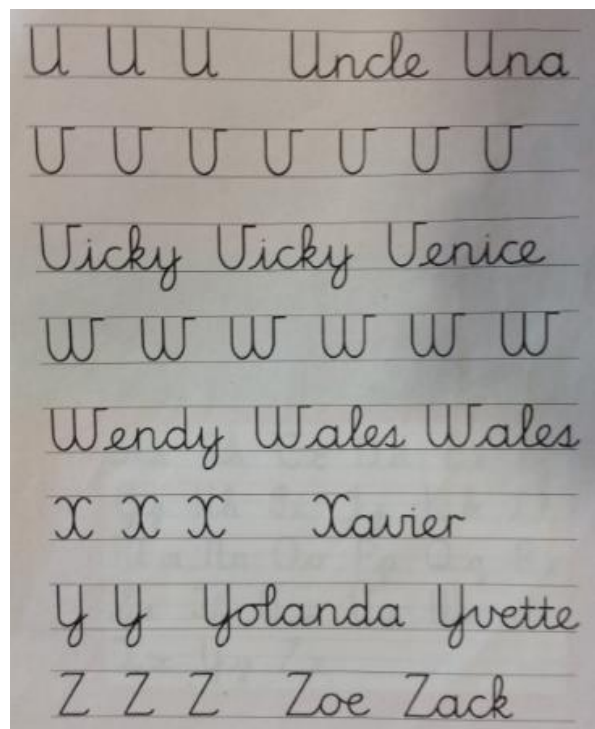 U U U Uncle Una
V V V V V V V
Vicky Vicky Venice
W W W W W W
Wendy Wales Wales
X X X Xavier
Y Y Yolanda Yvette
Z Z Z Zoe Zack